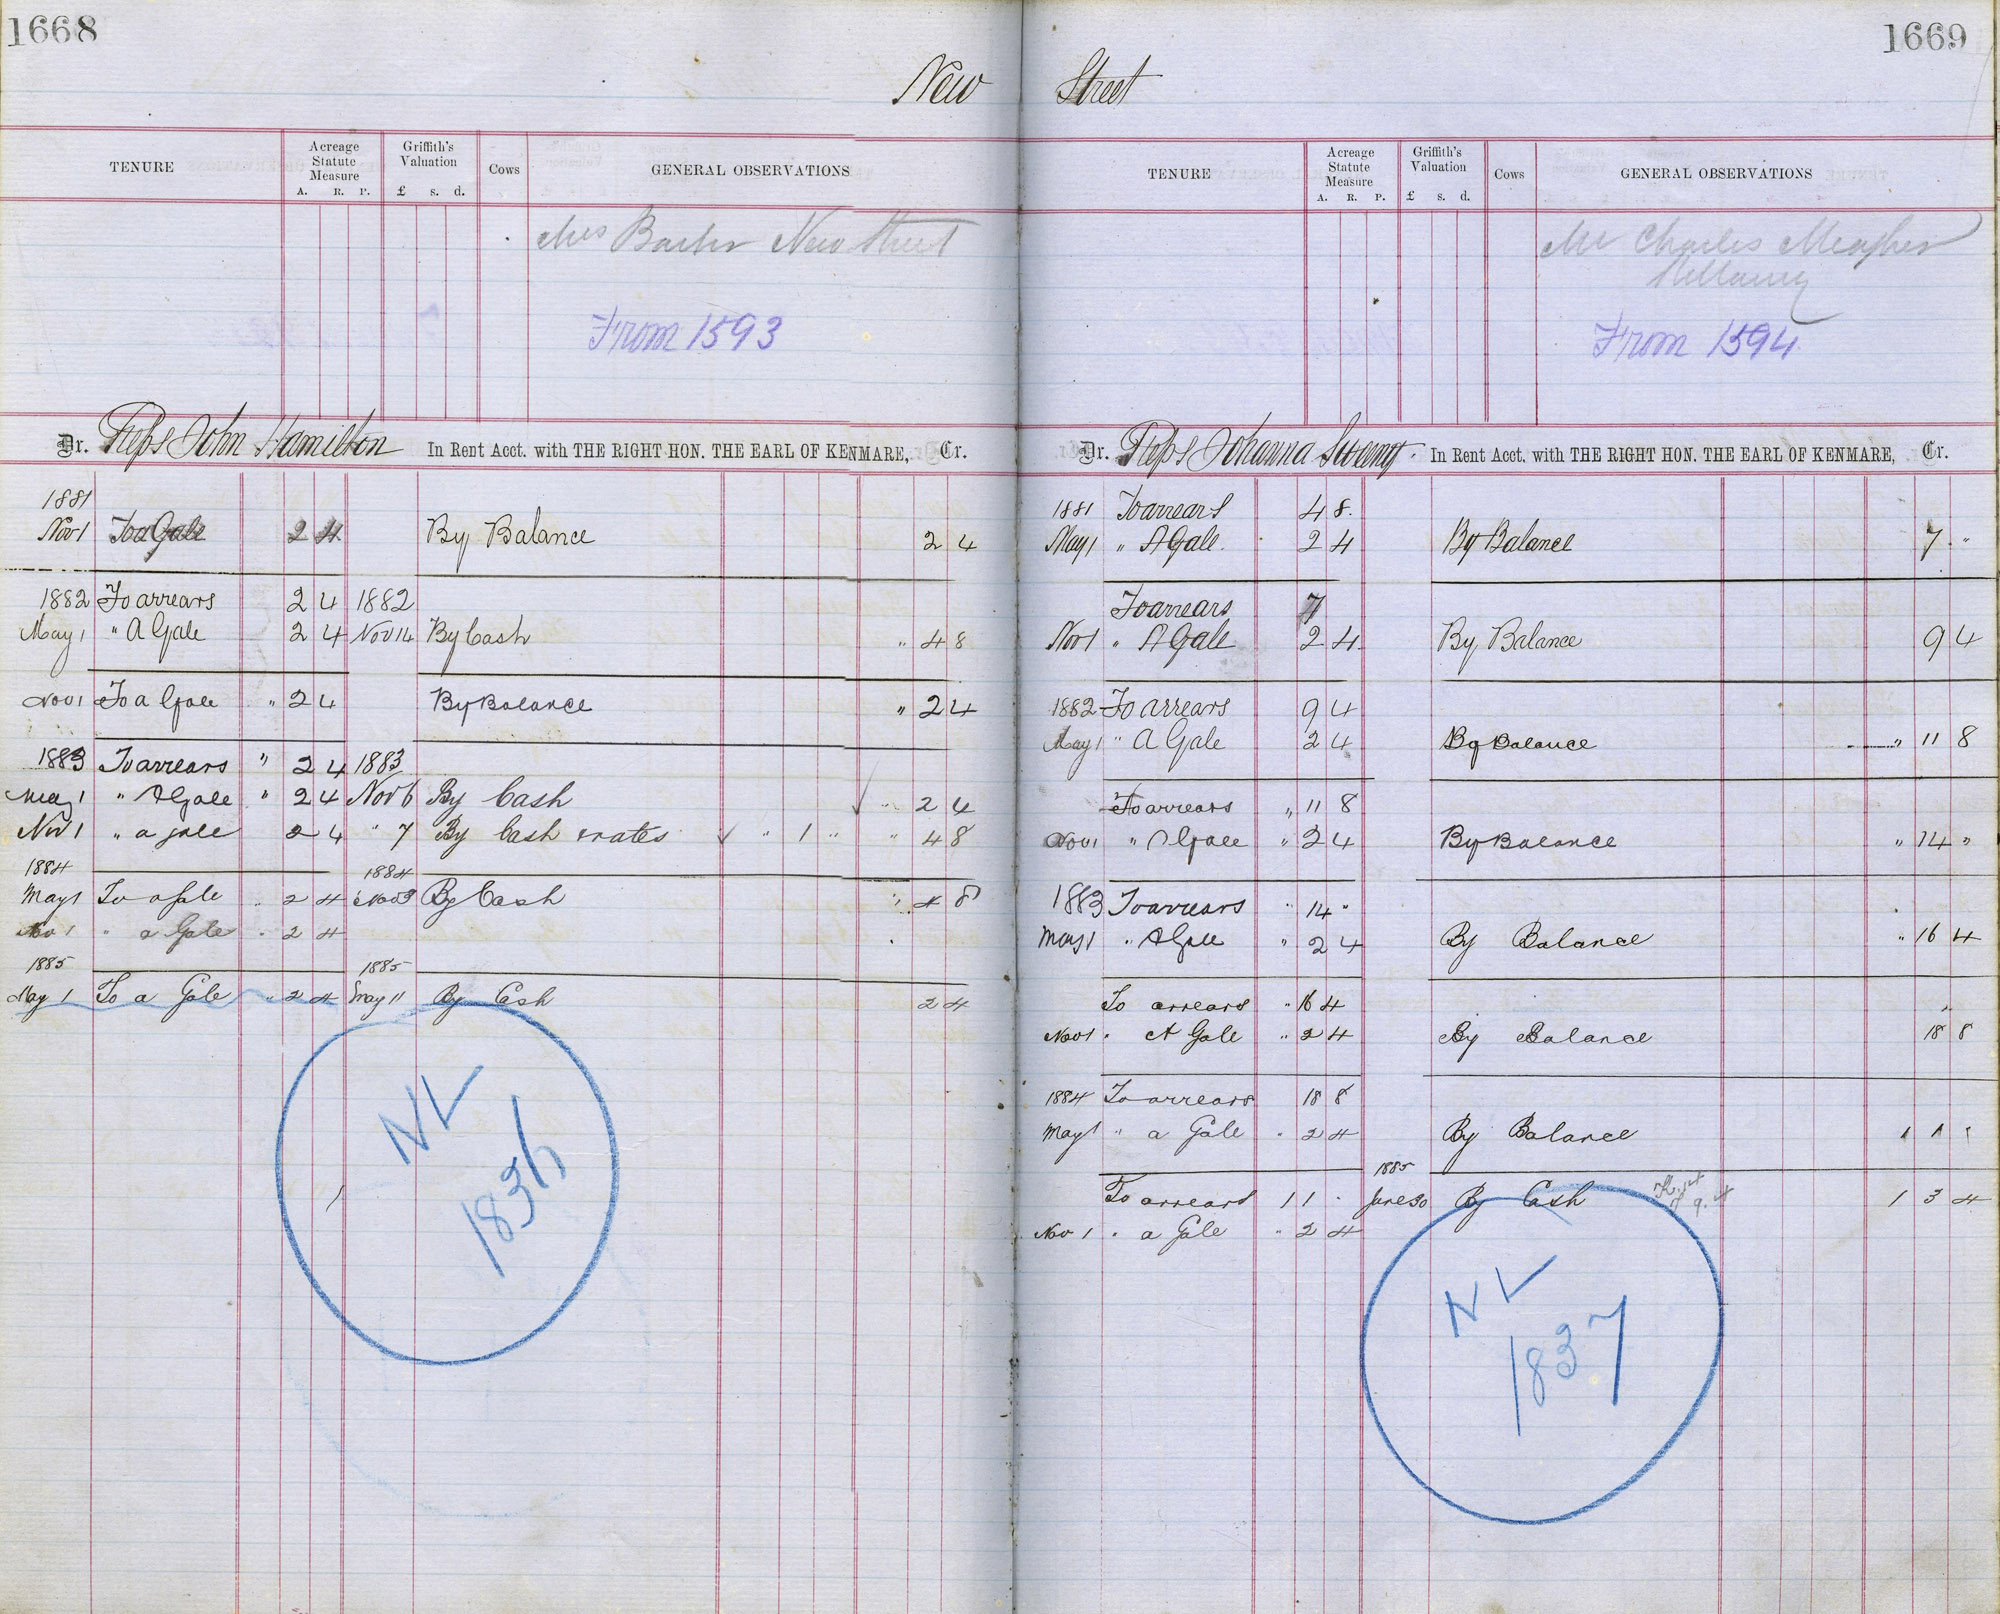 1668
New
TENURE
Acreage Statute Measure
A. R. P.
Griffith's Valuation
£ s. d.
Cows
GENERAL OBSERVATIONS
Mrs Barber New Street
From 1593
Dr. Reps John Hamilton In Rent Acct. with THE RIGHT HON. THE EARL OF KENMARE, Cr.
1881
Nov 1 To a Gale 2 4 By Balance 2 4
1882 To arrears 2 4 1882
May 1 " A Gale 2 4 Nov 14 By Cash " 4 8
Nov 1 To a Gale " 2 4 By Balance " 2 4
1883 To arrears " 2 4 1883
May 1 " A Gale " 2 4 Nov 6 By Cash " 2 4
Nov 1 " a gale 2 4 " 7 By Cash rates " 1 " " 4 8
1884 1884
May 1 To a Gale " 2 4 Nov 3 By Cash " 4 8
Nov 1 " a Gale " 2 4
1885 1885
May 1 To a Gale " 2 4 May 11 By Cash 2 4
NL
1836
1669
Street
TENURE
Acreage Statute Measure
A. R. P.
Griffith's Valuation
£ s. d.
Cows
GENERAL OBSERVATIONS
Mr Charles Meagher
Killarney
From 1594
Dr. Reps Johanna Sweeny In Rent Acct. with THE RIGHT HON. THE EARL OF KENMARE, Cr.
1881 To arrears 4 8
May 1 " A Gale 2 4 By Balance 7 "
To arrears 7
Nov 1 " A Gale 2 4 By Balance 9 4
1882 To arrears 9 4
May 1 " A Gale 2 4 By Balance " 11 8
To arrears " 11 8
Nov 1 " A Gale " 2 4 By Balance " 14 "
1883 To arrears " 14 "
May 1 " A Gale " 2 4 By Balance " 16 4
To arrears " 16 4
Nov 1 " A Gale " 2 4 By Balance 18 8
1884 To arrears 18 8
May 1 " a Gale " 2 4 By Balance 1 1 "
1885
To arrears 1 1 " June 30 By Cash 1 3 4
Nov 1 " a Gale " 2 4
NL
1837